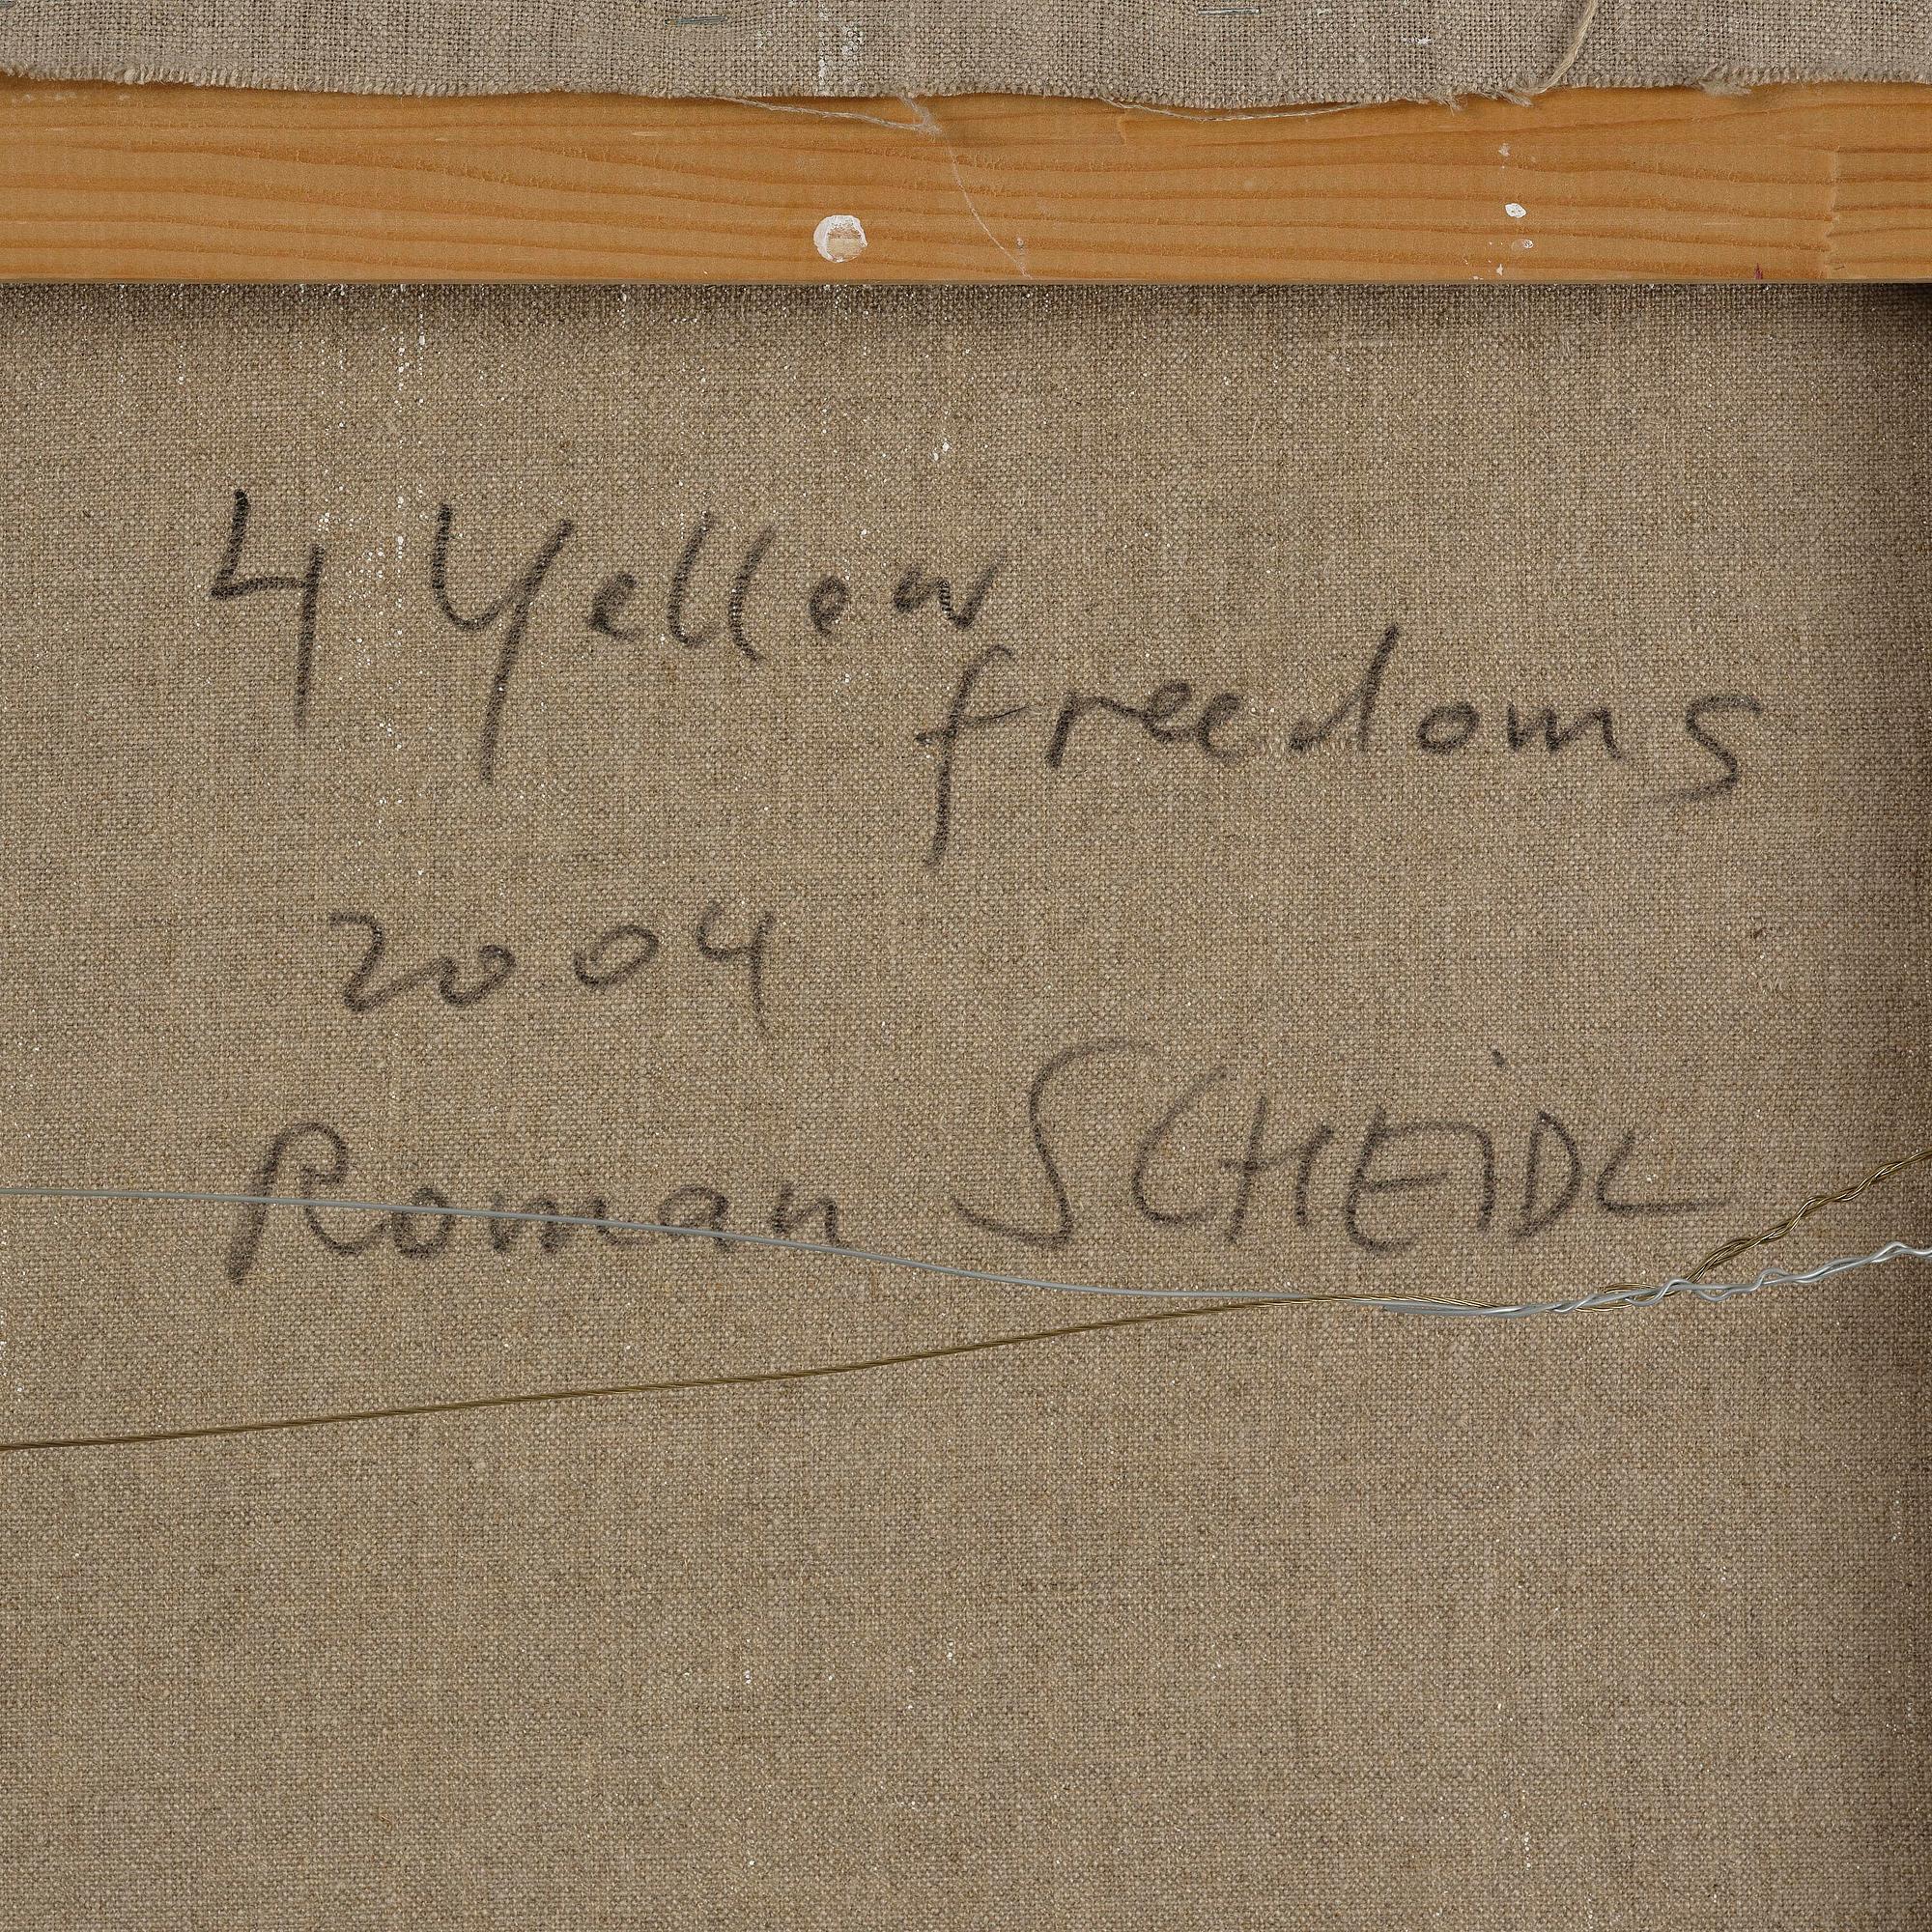 4 Yellow
freedoms
2004
Roman SCHEiDL